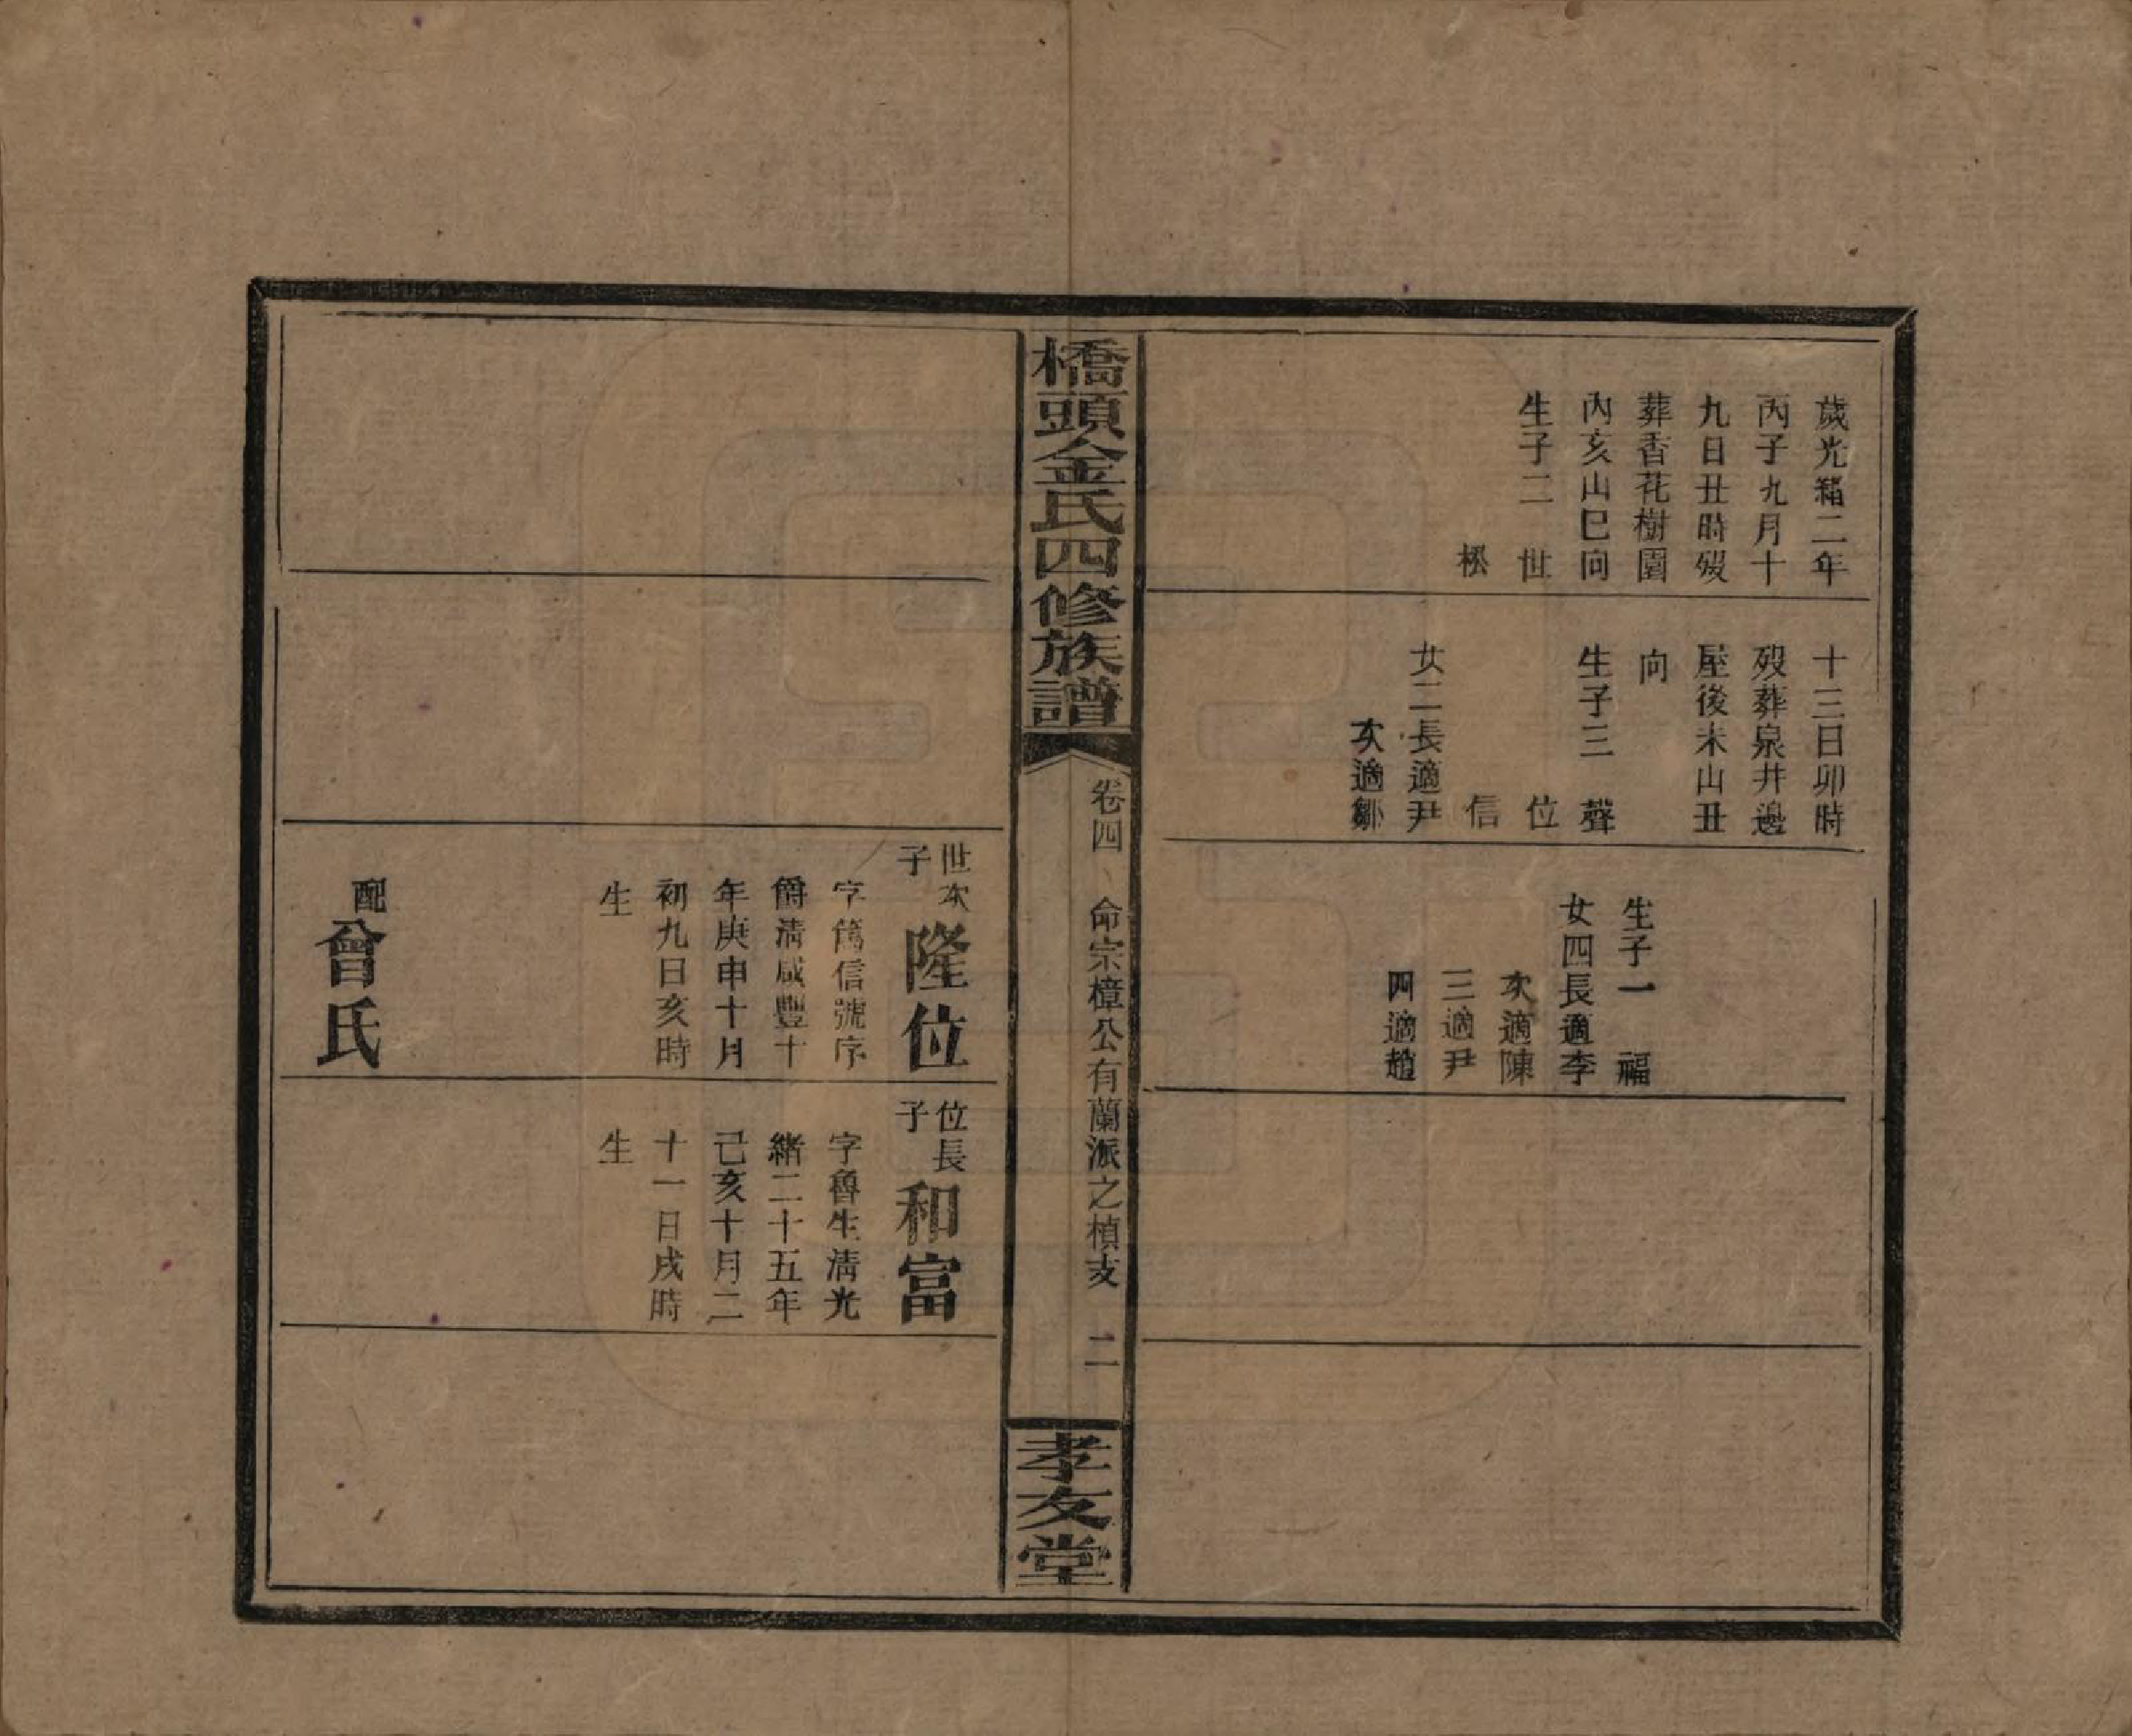 歲光緒二年
丙子九月十
九日丑時殁
葬香花樹園
內亥山巳向
生子二　世
松
十三日卯時
殁葬泉井邊
屋後未山丑
向
生子三　聲
位
信
女二長適尹
次適鄒
生子一　福
女四長適李
次適陳
三適尹
四適趙
橋頭金氏四修族譜
卷四
命宗樟公有蘭派之楨支　二
孝友堂
世次
子
隆位
字篤信號序
爵清咸豐十
年庚申十月
初九日亥時
生
配
曾氏
位長
子
和富
字魯生清光
緒二十五年
己亥十月二
十一日戌時
生